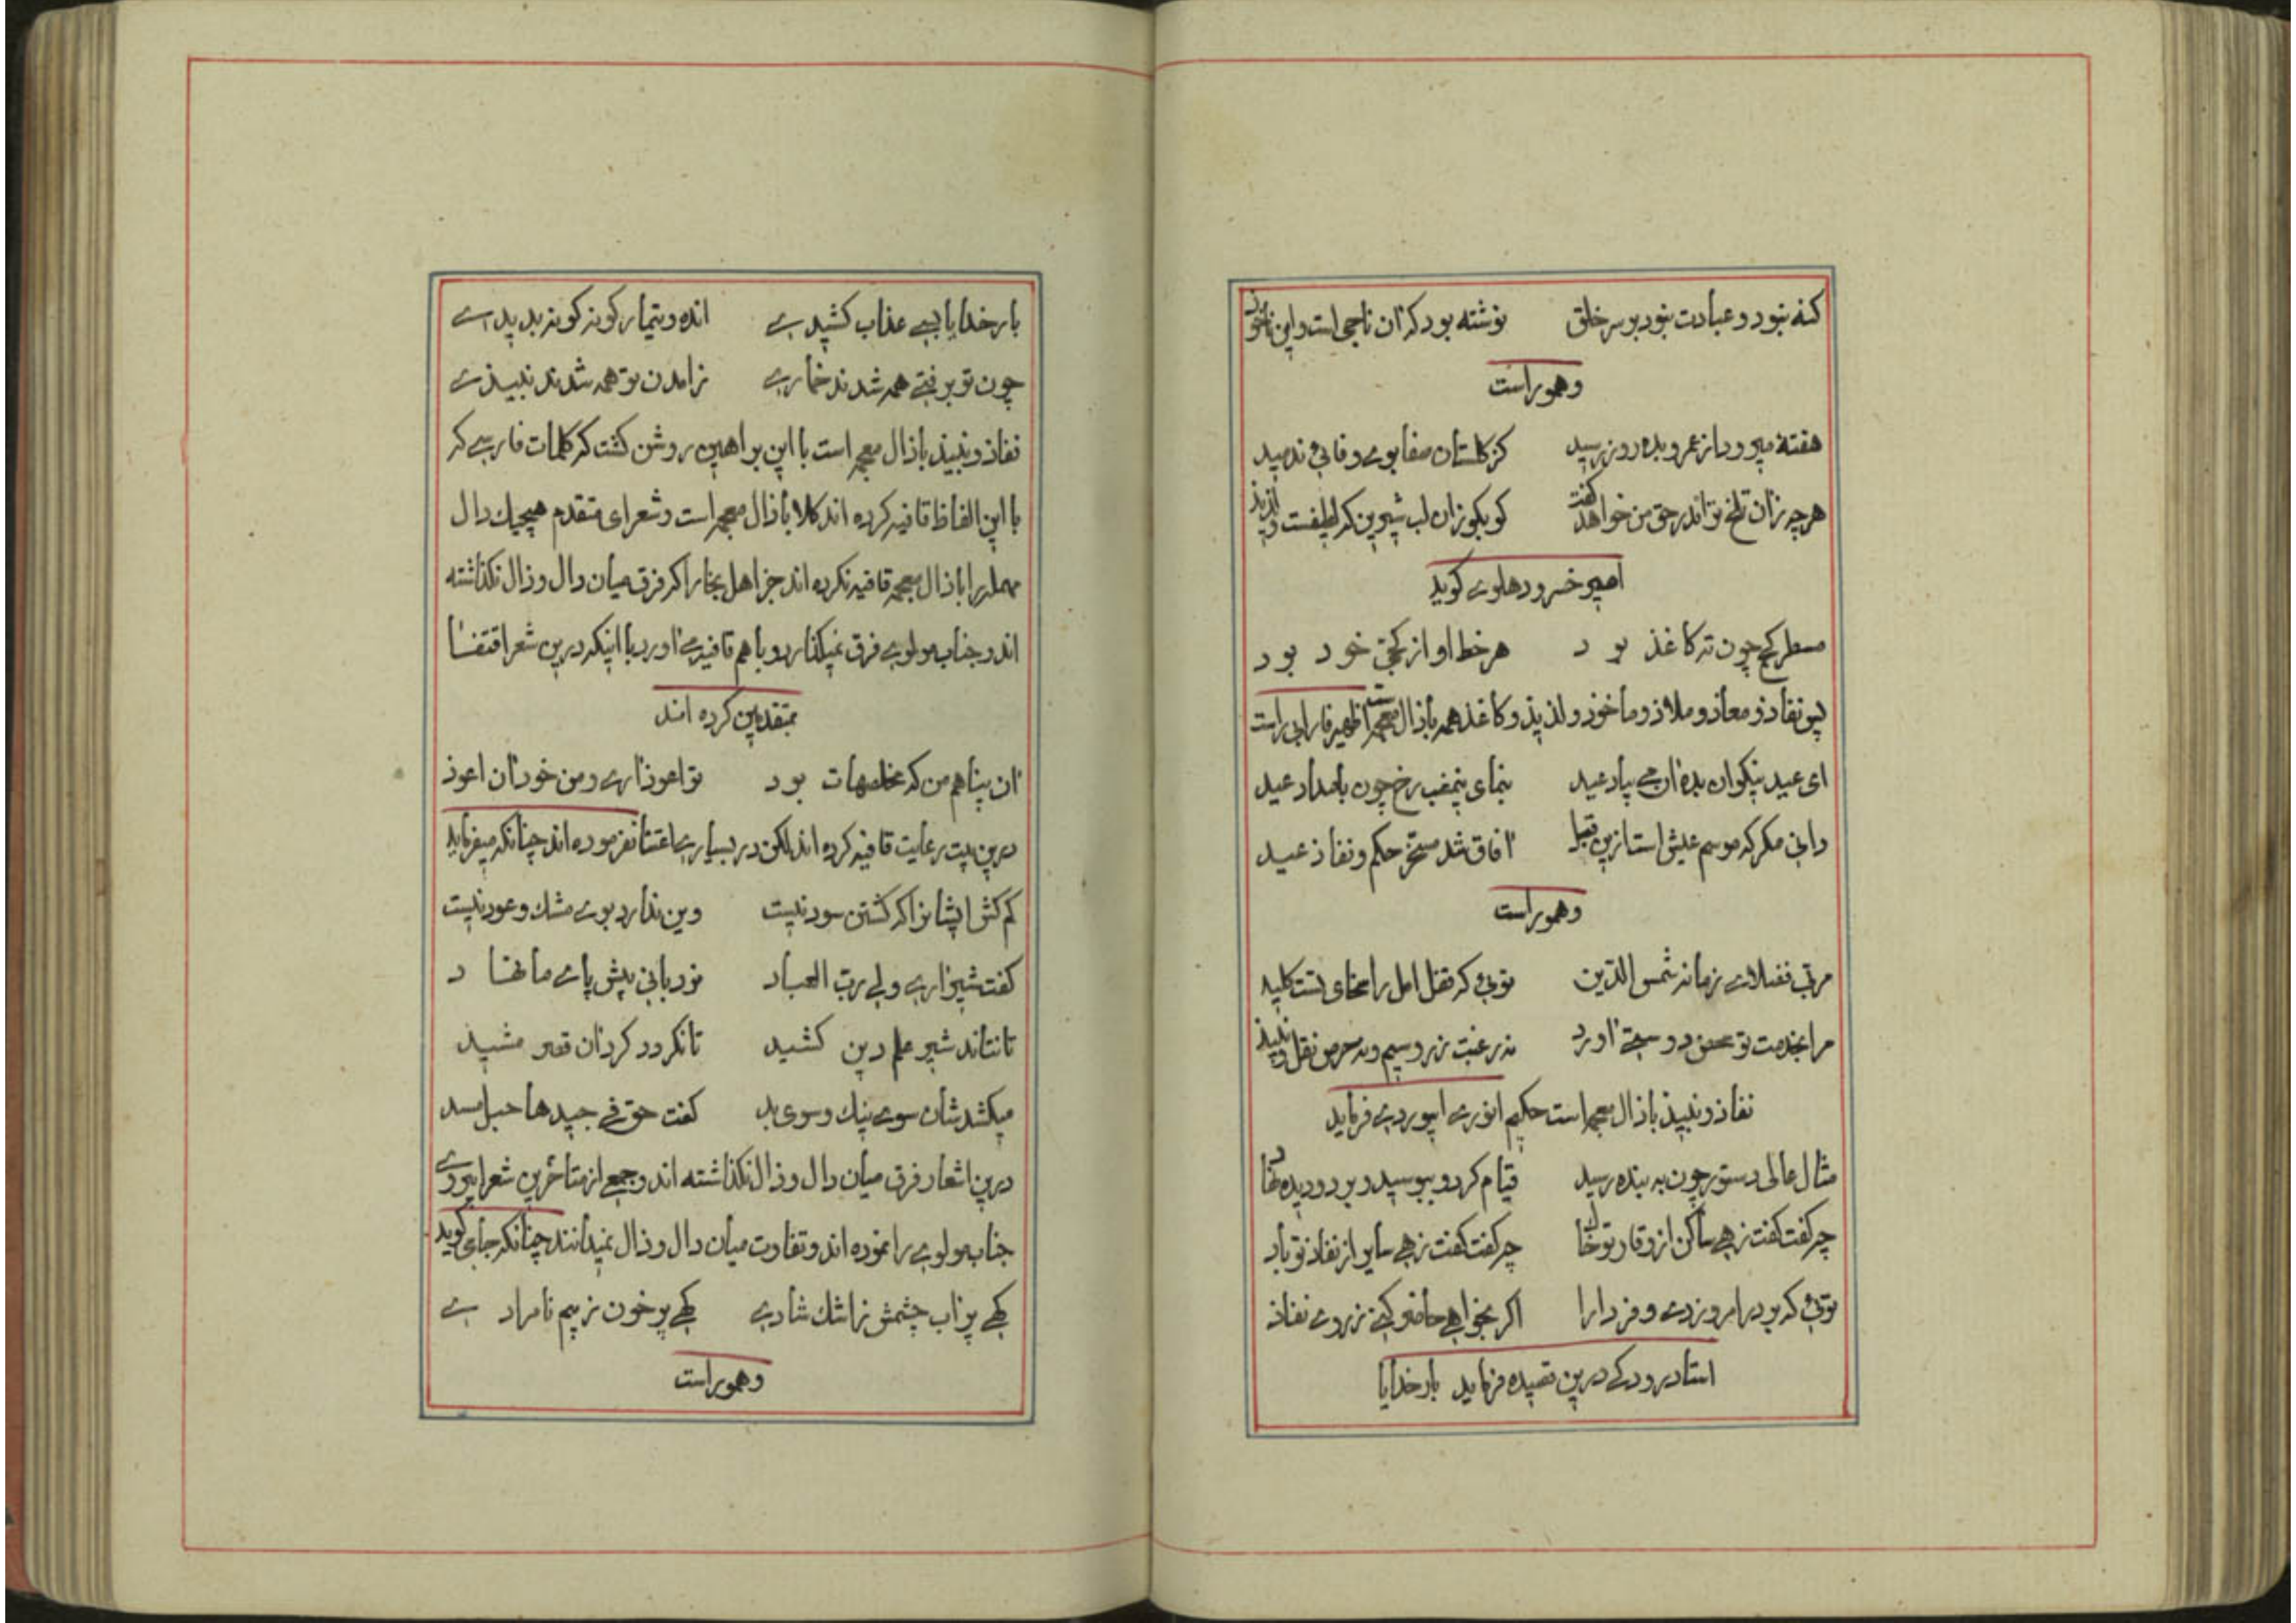 کنه نبود و عبادت نبود بر سر خلق نوشته بود که آن ناجی است و این ماخوذ
وهوراست
هفتهٔ میرود از عمر و بده روز رسید کز کلستان صفا بوے وفائی ندمید
هر چه زان تلخ تو اندر حق من خواهد کفت کو بکو زان لب شیرین که لطیفست و لذیذ
امیر خسرو دهلوے کوید
مسطر کج چون ته کاغذ بود هر خط او از کجی خود بود
پس نفاذ و معاذ و ملاذ و ماخوذ و لذیذ و کاغذ همه با ذال معجمه است ظهیر فاریابی راست
ای عید نیکوان بده آن می بیاد عید بنمای نیمشب رخ چون بامداد عید
دانی مکر که موسم عیش است ازین قبل آفاق شد مسخر حکم و نفاذ عید
وهوراست
مربی فضلاے زمانه شمس الدین توئی که قفل امل را سخای تست کلید
مرا بخدمت تو محض دوستی آورد نه رغبت زر و سیم و نه حرص نقل و نبیذ
نفاذ و نبیذ با ذال معجمه است حکیم انورے ابیوردے فرماید
مثال عالی دستور چون به بنده رسید قیام کرد و ببوسید و بر دو دیده نهاد
چه کفت کفت زهے ساکن از وقار تو خاک چه کفت کفت زهے سایر از نفاذ تو باد
توئی که بر در امروز دے و فردا را اکر بخواهے حاضر کنے ز روے نفاذ
استاد رودکے درین قصیده فرماید بار خدایا
بار خدایا بسے عذاب کشیدے انده و تیمار کونه کونه بدیدے
چون تو برفتے همه شدند خمارے ز آمدن تو همه شدند نبیذے
نفاذ و نبیذ با ذال معجمه است با این براهین روشن کشت که کلمات فارسے که
با این الفاظ قافیه کرده اند کلا با ذال معجمه است و شعرای متقدم هیچیك دال
مهمله را با ذال معجمه قافیه نکرده اند جز اهل بخارا که فرق میان دال و ذال نکذاشته
اند و جناب مولوے فرق نمیکذارد و با هم قافیه مے آورد با اینکه درین شعر اقتفا
بمتقدمین کرده اند
آن پناهم من که مخلصهات بود تو اعوذ آرے و من خود آن اعوذ
درین بیت رعایت قافیه کرده اند لکن در بسیارے اعتنا نفرموده اند چنانکه میفرماید
کم کش ایشانرا که کشتن سود نیست وین ندارد بوے مشك و عود نیست
کفت شیر آرے ولے رب العباد نردبانی پیش پاے ما نهاد
تا نتاند شیر علم دین کشید تا نکردد کرد آن قصر مشید
میکشدشان سوے نیك و سوی بد کفت حق فے جیدها حبل مسد
درین اشعار فرق میان دال و ذال نکذاشته اند و جمعے از متاخرین شعرا پیروے
جناب مولوے را نموده اند و تفاوت میان دال و ذال نمیدانند چنانکه جامی کوید
کهے پر آب چشمش ز اشك شادے کهے پر خون ز بیم نامرادے
وهوراست